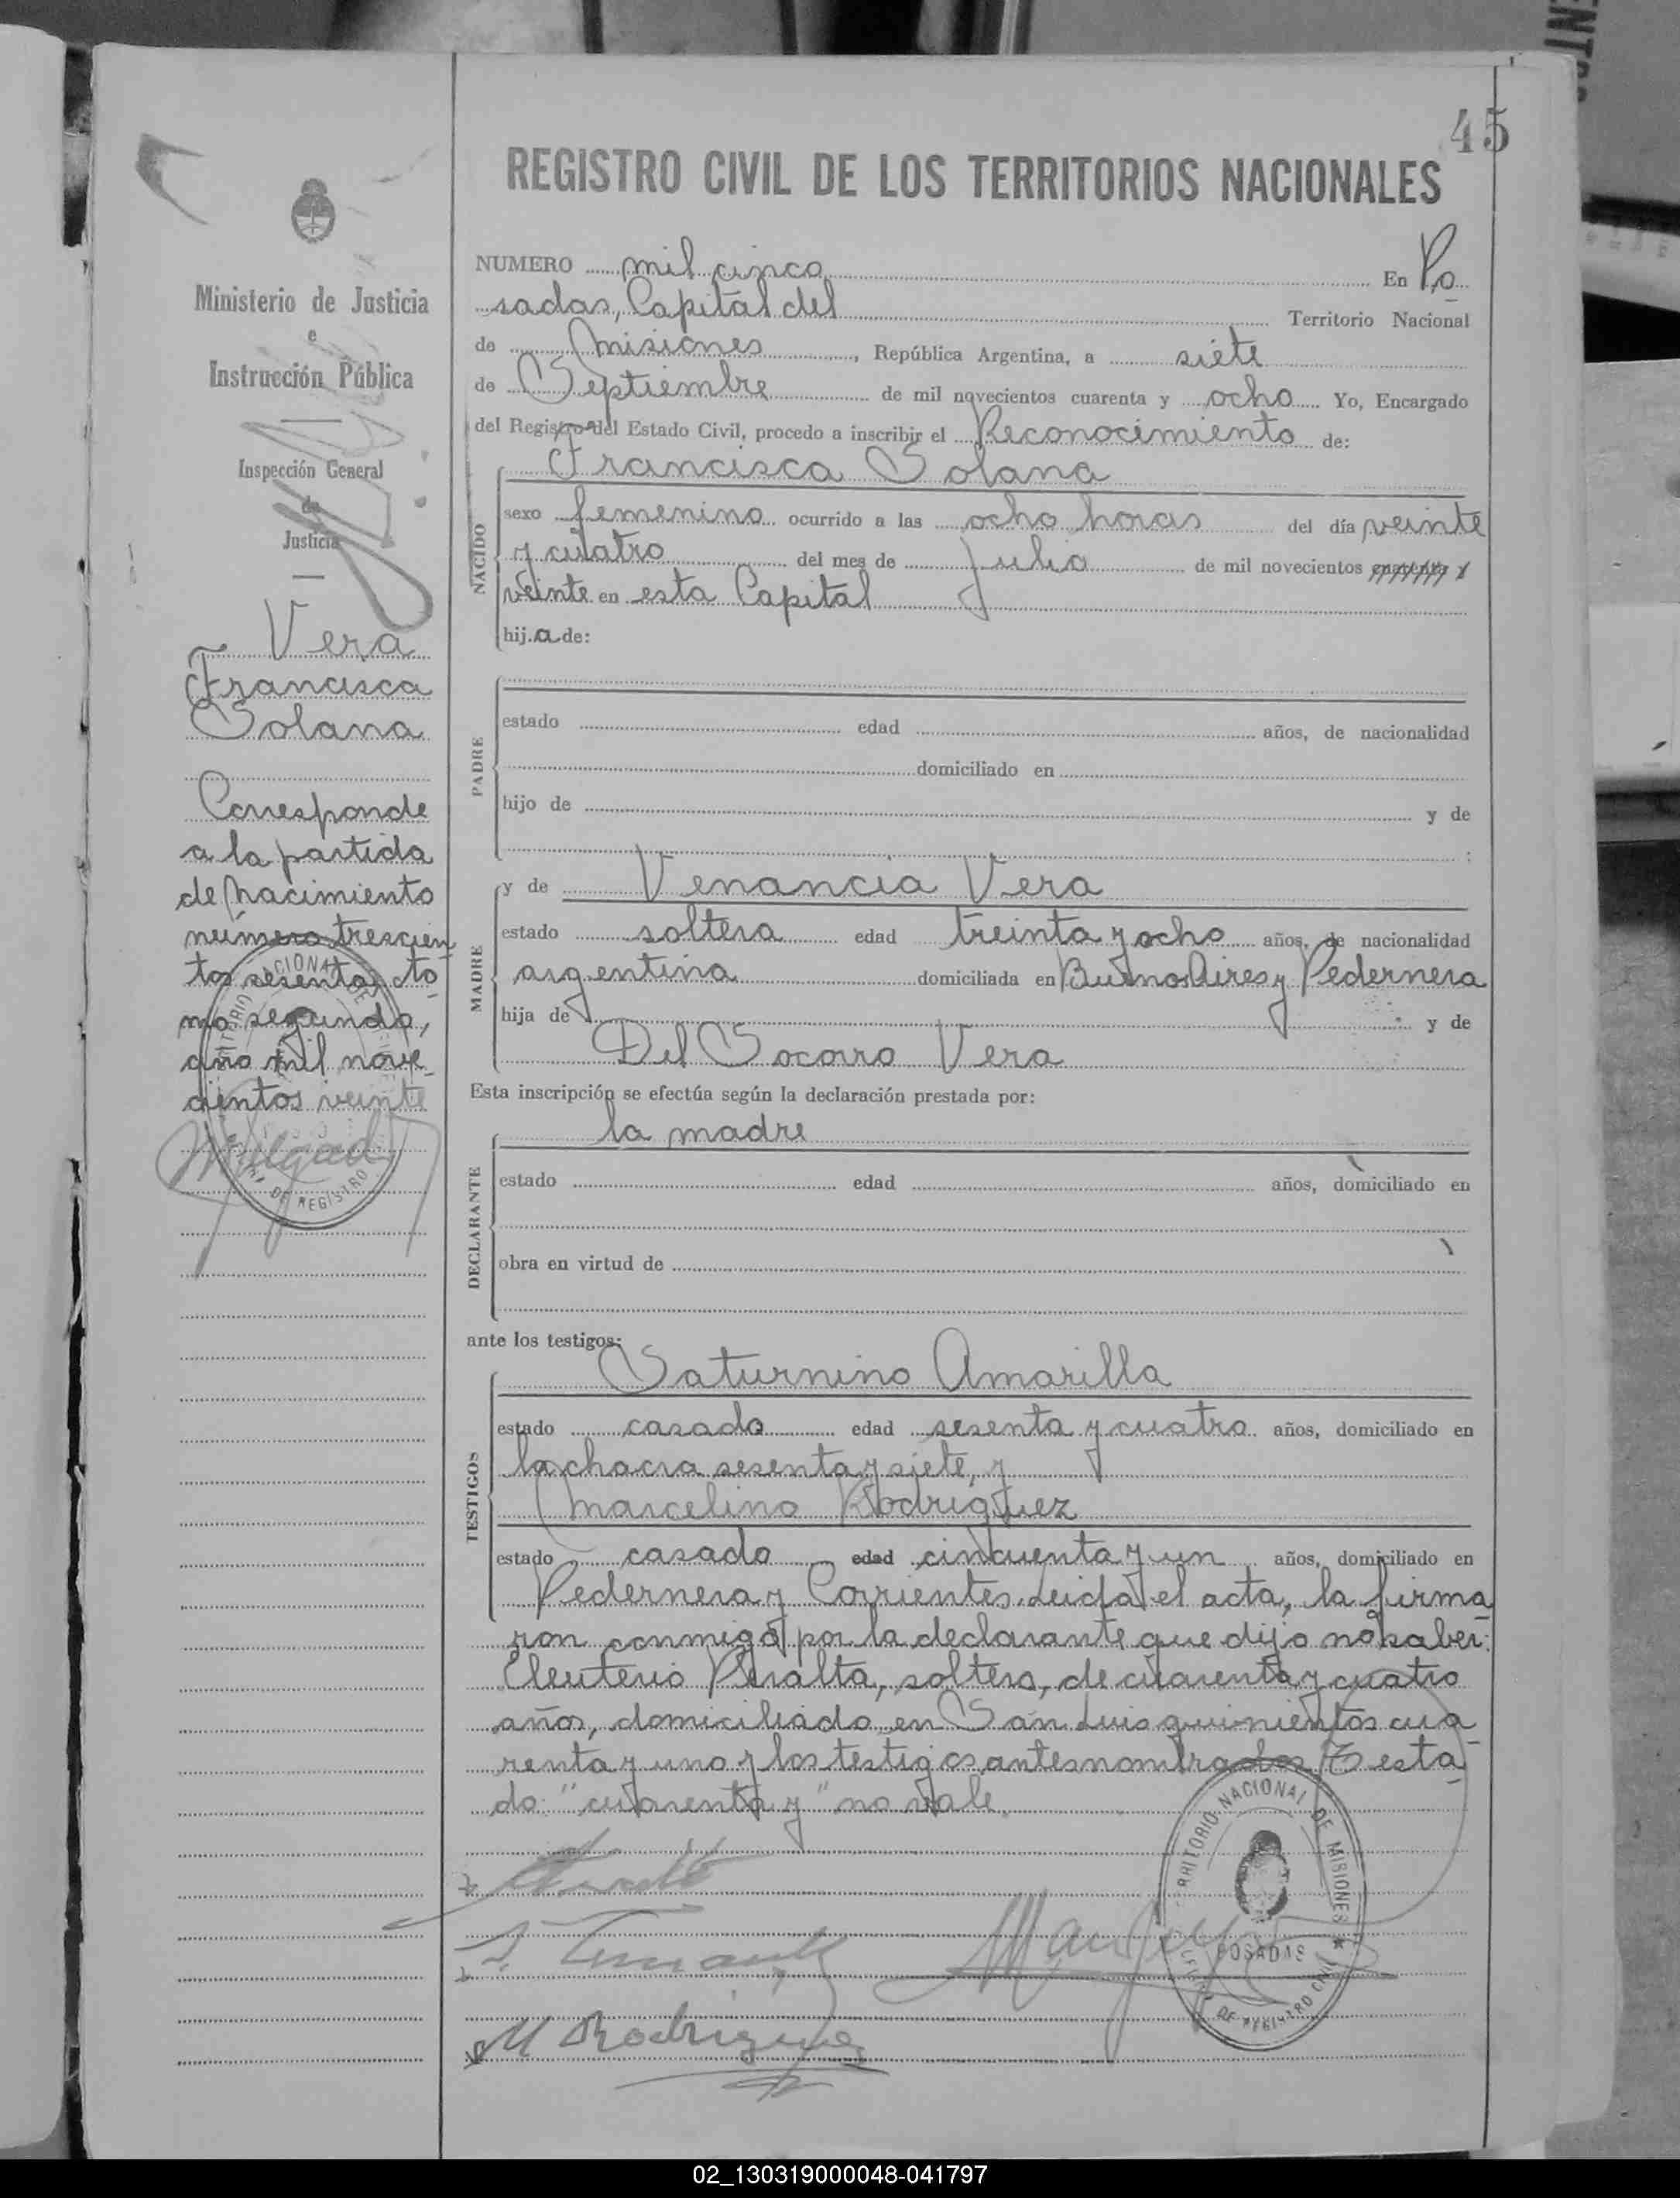 45
REGISTRO CIVIL DE LOS TERRITORIOS NACIONALES
Ministerio de Justicia
e
Instrucción Pública
Inspección General
de
Justicia
Vera
Francisca
Solana
Corresponde
a la partida
de nacimiento
número trescien
tos sesenta, to-
mo segundo,
año mil nove-
cientos veinte
NUMERO mil cinco En Po-
sadas, Capital del Territorio Nacional
de Misiones, República Argentina, a siete
de Septiembre de mil novecientos cuarenta y ocho Yo, Encargado
del Registro del Estado Civil, procedo a inscribir el Reconocimiento de:
NACIDO
Francisca Solana
sexo femenino ocurrido a las ocho horas del día veinte
y cuatro del mes de Julio de mil novecientos cuarenta y
veinte en esta Capital
hij.a de:
PADRE
estado edad años, de nacionalidad
domiciliado en
hijo de y de
:
MADRE
y de Venancia Vera
estado soltera edad treinta y ocho años, de nacionalidad
argentina domiciliada en Buenos Aires y Pedernera
hija de y de
Del Socorro Vera
Esta inscripción se efectúa según la declaración prestada por:
DECLARANTE
la madre
estado edad años, domiciliado en
obra en virtud de
ante los testigos:
TESTIGOS
Saturnino Amarilla
estado casado edad sesenta y cuatro años, domiciliado en
la chacra sesenta y siete, y
Marcelino Rodriguez
estado casado edad cincuenta y un años, domiciliado en
Pedernera y Corrientes. Leida el acta, la firma-
ron conmigo por la declarante que dijo no saber:
Eleuterio Peralta, soltero, de cuarenta y cuatro
años, domiciliado en San Luis quinientos cua-
renta y uno y los testigos antes nombrados Testa-
do: "cuarenta y" no vale.
M Rodriguez
TERRITORIO NACIONAL DE MISIONES
POSADAS
OFICINA DE REGISTRO CIVIL
02_130319000048-041797